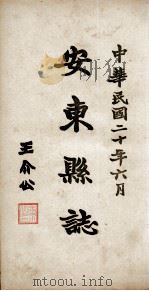 中華民國二十年六月
安東縣誌
王介公
www.mtoou.info